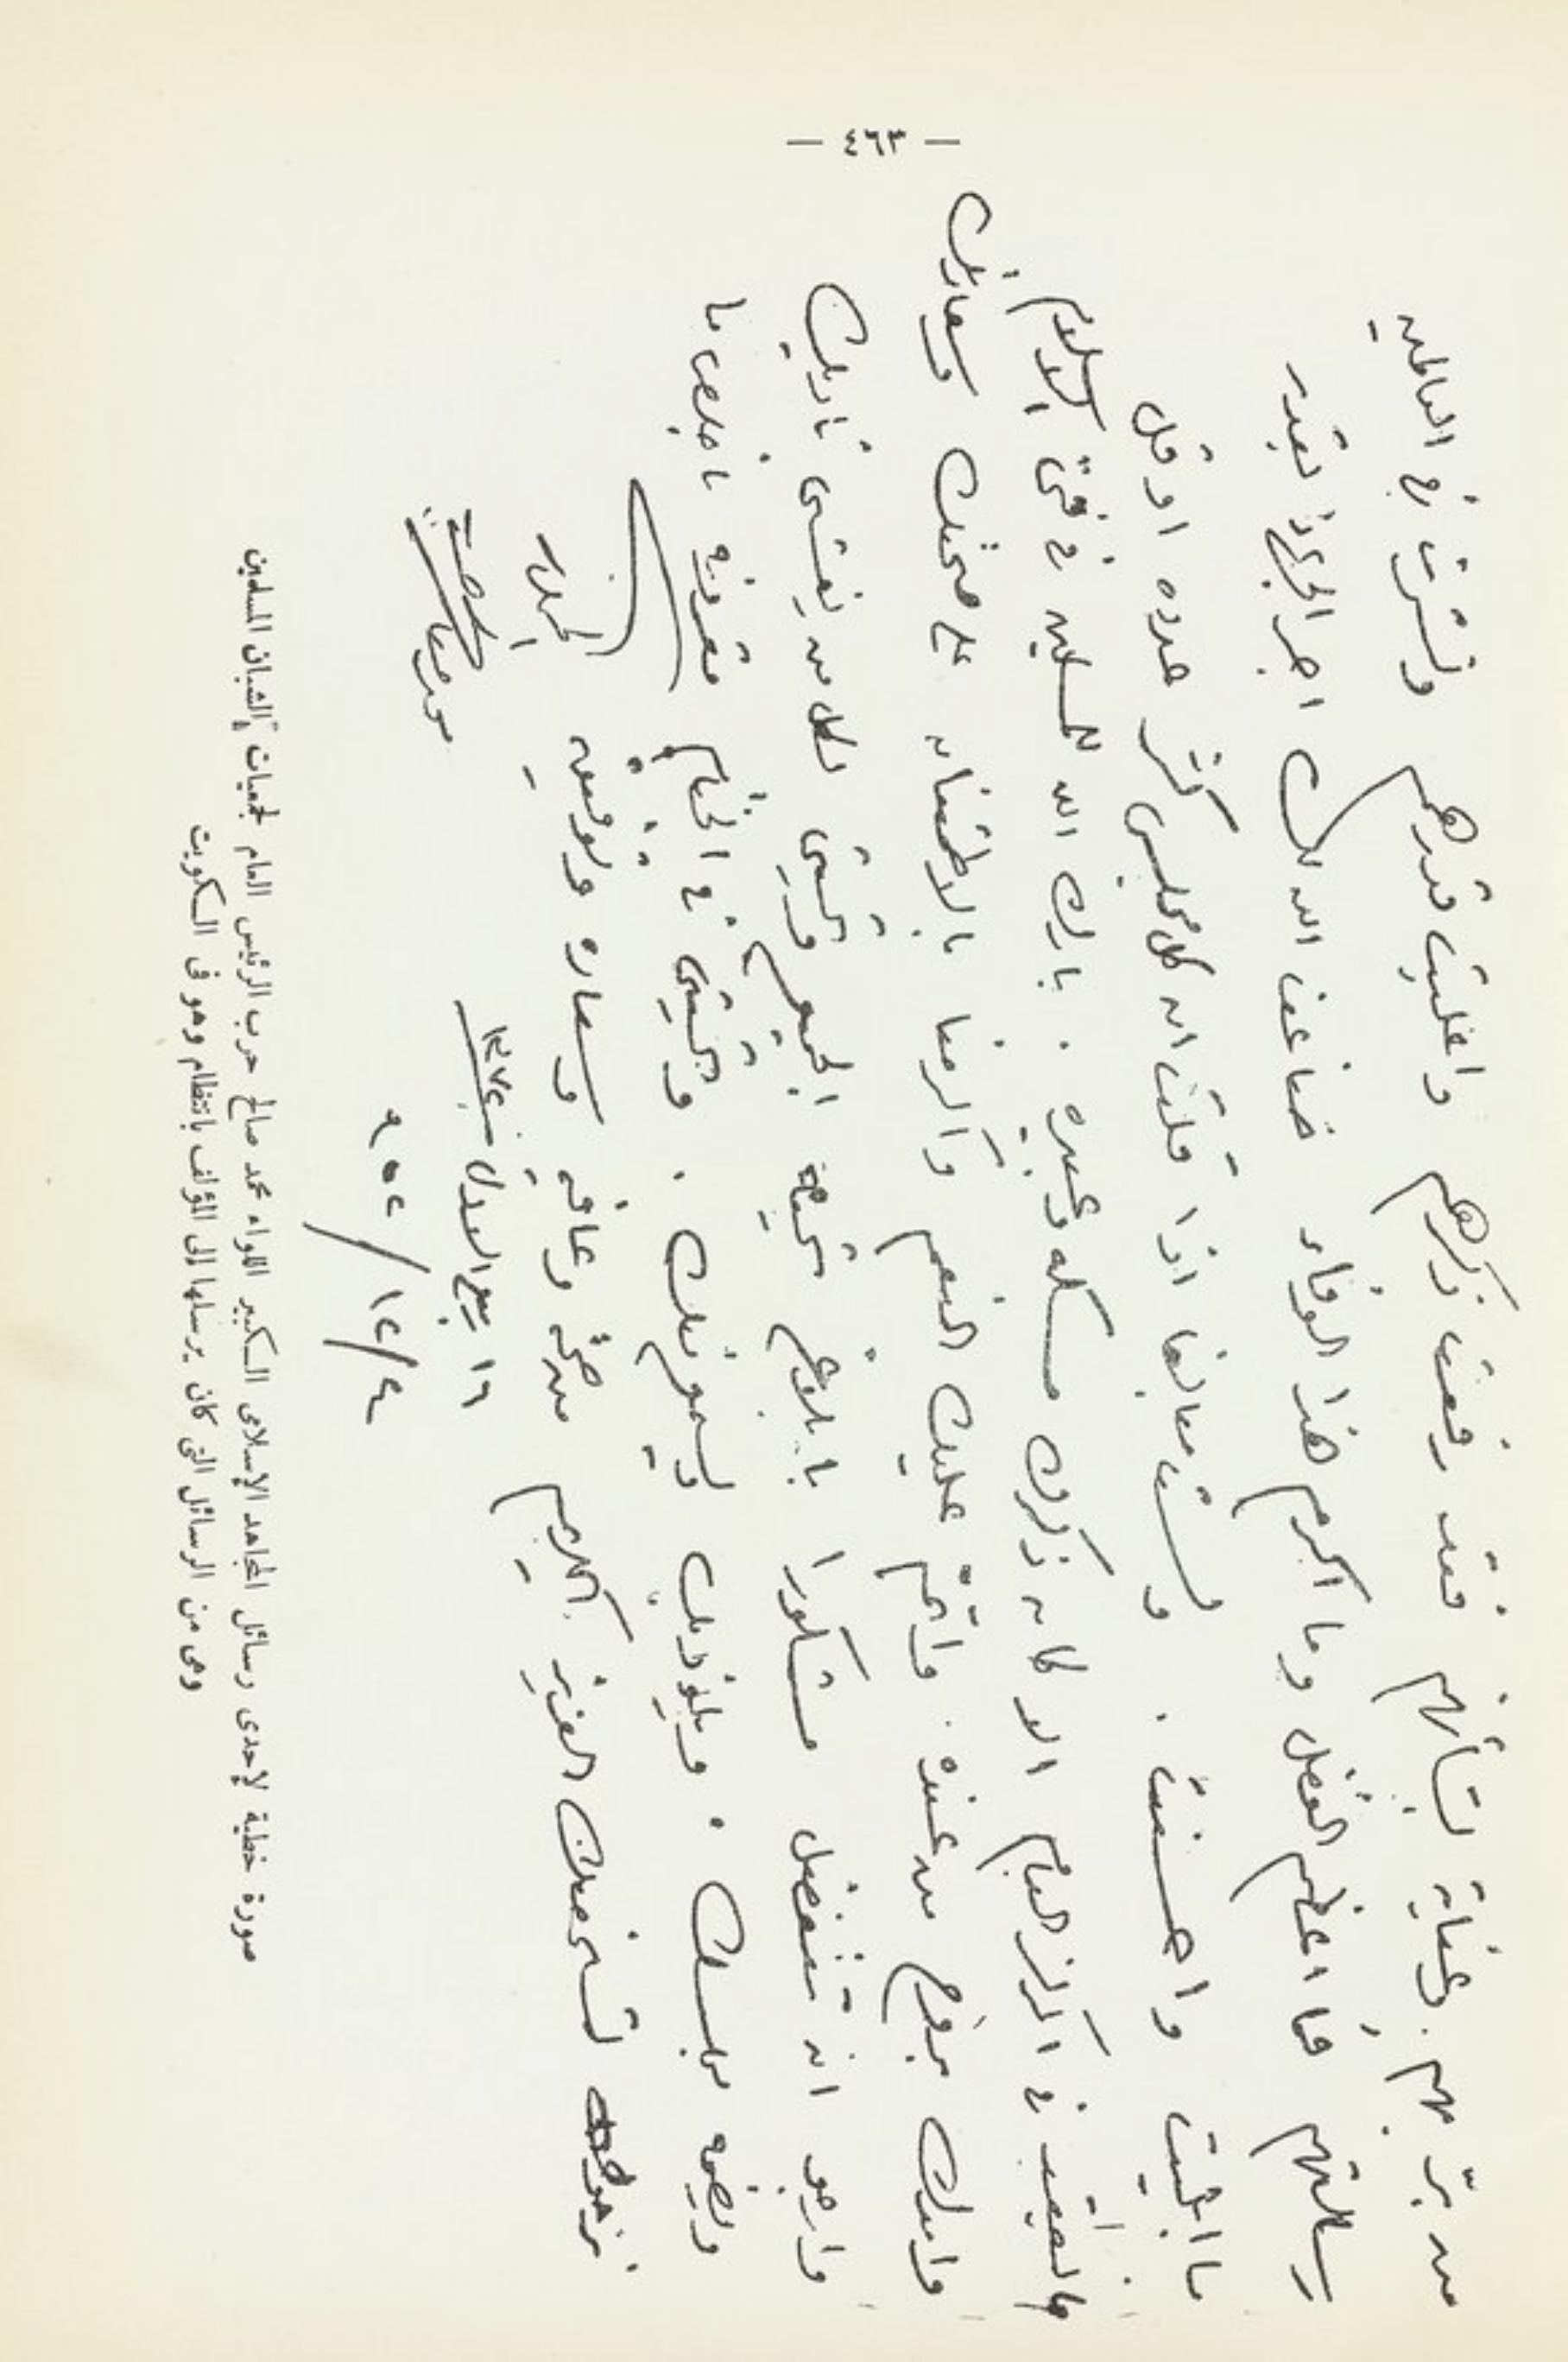 — ٤٦٢ —
من برّ بهم. وعناية بشأنهم فقد رفعت ذكرهم واعليت قدرهم ونشرت في العالمين
رسالتهم فما اعظم الفضل وما اكرم هذا الوفاء ضاعف الله لك اجر الجزى بقدر
ما ابليت واحسنت. ولست مبالغا اذا قلت ان كل مجلس كثر عدده او قل
الا كان ذكرك مسكه وعبيره. بارك الله للمسلمين في فتى الاسلام
وامدك بروح من عنده. واتم عليك النعم واكرمنا بالاطمئنان على صحتك وسعادتك
وارجو ان تتفضل مشكورا بابلاغ تحية الجميع وتحيتى لكل من يغشى ناديك
ويضمه مجلسك. ويلوذ بك وتحيتى في الختام مقرونة باخلص ما
نرجوه لشخصك العزيز الكريم من صحة وعافية وسعادة وتوفيق
المخلص
محمد صالح حرب
١٦ ربيع الاول سنة ١٣٧٢
٤/١٢/٩٥٢
صورة خطية لإحدى رسائل المجاهد الإسلامى الكبير اللواء محمد صالح حرب الرئيس العام لجمعيات الشبان المسلمين
وهى من الرسائل التى كان يرسلها إلى المؤلف بانتظام وهو فى الكويت